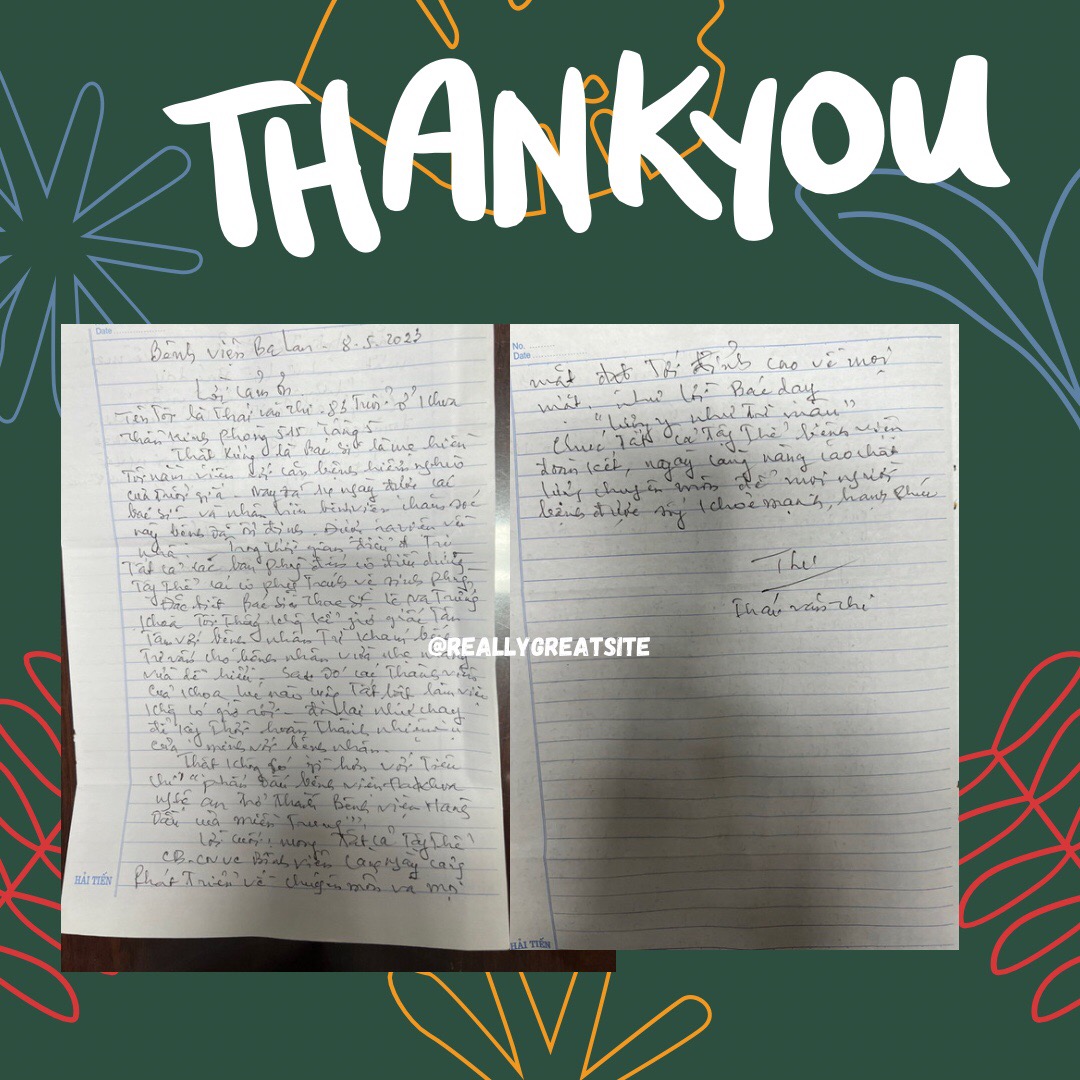 THANKYOU
Date
Bệnh viện Ba Lan - 8.5.2023
Lời cảm ơn
Tên tôi là Thái Văn Thi 83 Tuổi ở khoa
Thần Kinh phòng 515 Tầng 5
Thật kính là Bác sĩ là mẹ hiền
Tôi nằm viện với căn bệnh hiểm nghèo
của tuổi già - Nay đã ngày được các
bác sĩ và nhân viên bệnh viện chăm sóc
nay bệnh đã ổn định. Được ra viện về
nhà. Trong thời gian điều Trị
Tất cả các ban phục đến cô điều dưỡng
Tập Thể
Đặc biệt Bác sĩ Thạc sĩ Lê
khoa Tôi Thấy không kể giờ giấc Tận
Tâm với bệnh nhân Từ khám bệnh
Tư vấn cho bệnh nhân vừa nhẹ nhàng
vừa dễ hiểu, Sau đó các Thành viên
của khoa lúc nào cũng Tất bật làm việc
không có giờ rỗi - đi lại như chạy
để Tập Thể hoàn Thành nhiệm vụ
của mình với bệnh nhân.
Thật không có gì hơn với Tiêu
chí "phấn đấu bệnh viện
nghệ an Trở Thành Bệnh viện Hàng
Đầu của miền Trung"
Lời cuối, mong Tất cả Tập Thể
CB.CNVC Bệnh viện Càng ngày càng
Phát Triển về chuyên môn và mọi
HẢI TIẾN
No.
Date
mặt đạt Tới đỉnh cao về mọi
mặt. như lời Bác dạy
"Lương y như Từ mẫu"
Chúc Tất cả Tập Thể bệnh viện
đoàn kết, ngày càng nâng cao chất
lượng chuyên môn để mọi người
bệnh được sống khỏe mạnh, hạnh phúc
Thi
Thái Văn Thi
@REALLYGREATSITE
HẢI TIẾN